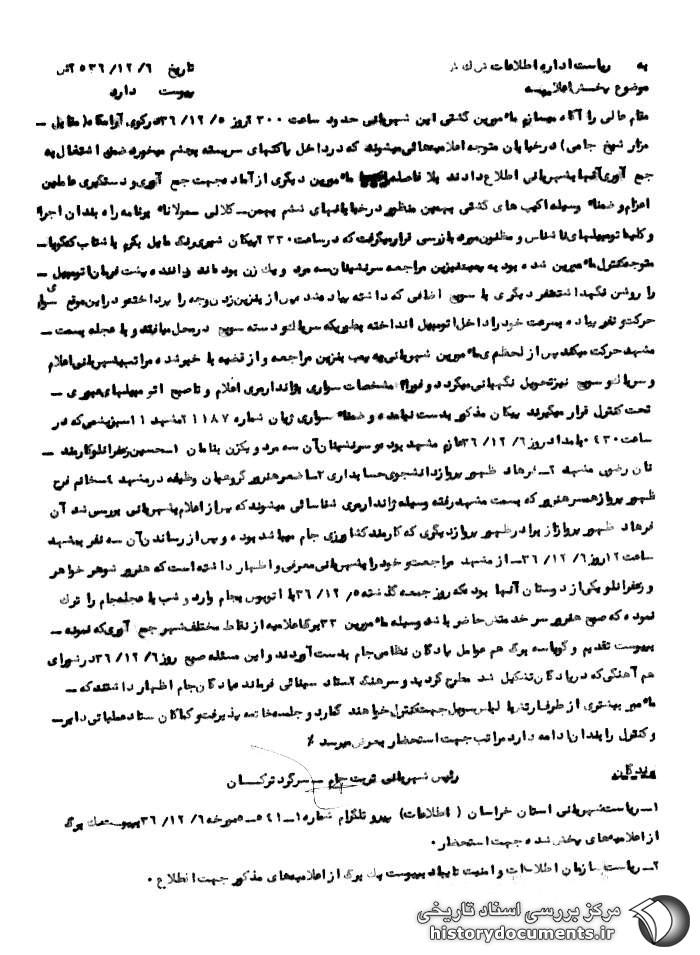 به ریاست اداره اطلاعات تاریخ ۶/ ۱۲/ ۳۶
موضوع پخش اعلامیه پیوست دارد
مقام عالی را آگاه میسازم مامورین گشتی این شهربانی حدود ساعت ۳۰۰ روز ۵/ ۱۲/ ۳۶ درکوی آرامگاه( مقابل ــ
مزار شیخ جامی) درخیابان متوجه اعلامیه‌هائی میشوند که درداخل پاکتهای سربسته بچشم میخورد ضمن اشتغال به
جمع آوری آنها بشهربانی اطلاع دادند بلا فاصله مامورین دیگری از آماده جهت جمع آوری و دستگیری عاملین
اعزام و ضمنا وسیله اکیپ های گشتی بهمین منظور درخیابانهای ششم بهمن ــ کلالی سمولانا برنامه راه بندان اجرا
و کلیه اتومبیلهای ناشناس و مظنون مورد بازرسی قرار میگرفت که درساعت ۳۳۰ پیکان شیری رنگ مایل بکرم با شتاب که گویا ــ
متوجه کنترل مامورین شده بود به پمپ بنزین مراجعه سرنشینان سه مرد و یک زن بوده‌اند راننده پشت فرمان اتومبیل ــ
را روشن نگهداشته نفر دیگری با سویچ اضافی که داشته پیاده شد پس از بنزین زدن وجه را پرداخته و دراین موقع سواری
حرکت و نفر پیاده بسرعت خود را داخل اتومبیل انداخته بطوریکه سریال نو دسته سویچ درمحل میافتد و با عجله بسمت ــ
مشهد حرکت میکند پس از لحظه‌ای مامورین شهربانی به پمپ بنزین مراجعه و از قضیه با خبر شده مراتب بشهربانی اعلام
و سریال نو سویچ نیز تحویل نگهبانی میگردد و فورا مشخصات سواری بژاندارمری اعلام و تا صبح اتومبیلهای عبوری ــ
تحت کنترل قرار میگیرند پیکان مذکور بدست نیامده و ضمنا سواری ژیان شماره ۱۱۸۷۲ مشهد ۱۱ سبز یشمی که در
ساعت ۴۳۰ بامداد روز ۶/ ۱۲/ ۳۶ عازم مشهد بوده و سرنشینان آن سه مرد و یکزن بنامان ۱ــ حسین زعفرانلو کارمند ــ
نان رضوی مشهد ۲ــ فرهاد ظهور پرواز دانشجوی حسابداری ۳ــ ناصر هنرور گروهبان وظیفه درمشهد ۴ــ خانم فرح
ظهور پرواز همسر هنرور که بسمت مشهد رفته وسیله ژاندارمری شناسائی میشوند که پس از اعلام بشهربانی بررسی شد آن
فرهاد ظهور پرواز از برادر ظهور پرواز دیگری که کارمند کشاورزی جام میباشد بوده و پس از رساندن آن سه نفر بمشهد
ساعت ۱۲ روز ۶/ ۱۲/ ۳۶ ــ از مشهد مراجعت و خود را بشهربانی معرفی و اظهار داشته است که هنرور شوهر خواهر
و زعفرانلو یکی از دوستان آنها بوده که روز جمعه گذشته ۵/ ۱۲/ ۳۶ با اتوبوس بجام وارد و شب با عجله جام را ترک
نموده که صبح هنرور سر خدمتش حاضر باشد وسیله مامورین ۳۳ برگ اعلامیه از نقاط مختلف شهر جمع آوری که نمونه ــ
بپیوست تقدیم و گویا سه برگ هم عوامل پادگان نظامی جام بدست آوردند و این مسئله صبح روز ۶/ ۱۲/ ۳۶ درشورای
هم آهنگی که درپادگان تشکیل شد مطرح گردید و سرهنگ ۲ ستاد سینائی فرمانده پادگان جام اظهار داشتند که ــ
مامور بیشتری از طرف ارتش با لباس سویل جهت کنترل خواهند گمارد و جلسه خاتمه پذیرفت و کماکان ستاد عملیاتی دایر ــ
و کنترل راه بندان ادامه دارد مراتب جهت استحضار بعرض میرسد ٪
رئیس شهربانی تربت جام ــ سرگرد ترکستان
گیرندگان
۱ــ ریاست شهربانی استان خراسان ( اطلاعات) پیرو تلگرام شماره ۱ــ ۵۴۱ــ ۵ مورخه ۶/ ۱۲/ ۳۶ بپیوست یک برگ
از اعلامیه‌های پخش شده جهت استحضار .
۲ــ ریاست سازمان اطلاعات و امنیت تایباد بپیوست یک برگ از اعلامیه‌های مذکور جهت اطلاع .
مرکز بررسی اسناد تاریخی
historydocuments.ir